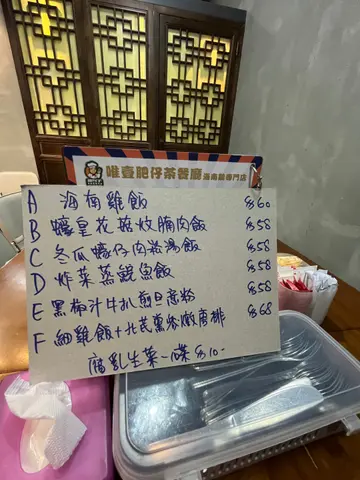 唯壹肥仔茶餐廳 海南雞專門店
A 海南雞飯 $60
B 蠔皇花菇炆腩肉飯 $58
C 冬瓜蠔仔肉崧湯飯 $58
D 炸菜蒸鯇魚飯 $58
E 黑椒汁牛扒煎旦底粉 $58
F 細雞飯+北芪黨參燉唐排 $68
腐乳生菜一碟 $10-